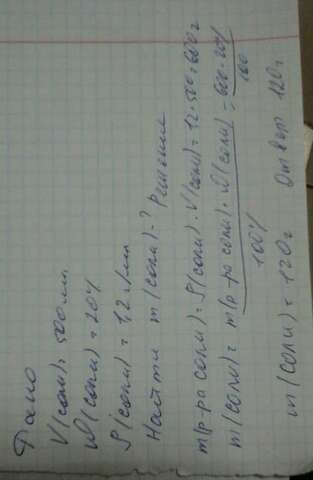 Дано
V(соли) = 500 мл
W(соли) = 20%
ρ(соли) = 1,2 г/мл
Найти m(соли) - ? Решение
m(р-ра соли) = ρ(соли) · V(соли) = 1,2 · 500 = 600 г
m(соли) = m(р-ра соли) · W(соли) / 100% = 600 · 20% / 100
m(соли) = 120 г Ответ 120 г